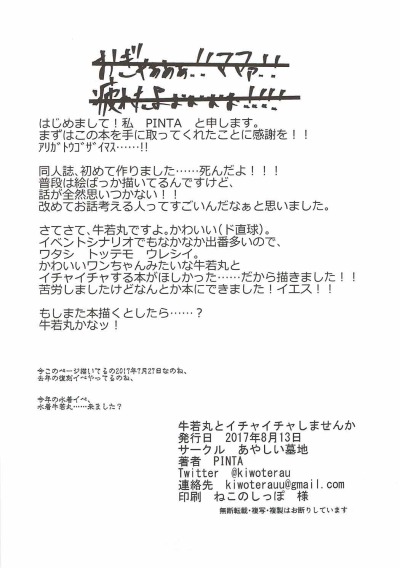 おぎゃあぁぁ!!ママァ!!
疲れたよょょょょ!!!!
はじめまして！私　PINTA　と申します。
まずはこの本を手に取ってくれたことに感謝を！！
ｱﾘｶﾞﾄｳｺﾞｻﾞｲﾏｽ……!!
同人誌、初めて作りました……死んだよ！！！
普段は絵ばっか描いてるんですけど、
話が全然思いつかない！！
改めてお話考える人ってすごいんだなぁと思いました。
さてさて、牛若丸ですよ。かわいい（ド直球）。
イベントシナリオでもなかなか出番多いので、
ワタシ　トッテモ　ウレシイ。
かわいいワンちゃんみたいな牛若丸と
イチャイチャする本がほしかった……だから描きました！！
苦労しましたけどなんとか本にできました！イエス！！
もしまた本描くとしたら……？
牛若丸かなッ！
今このページ描いてるの2017年7月27日なのね、
去年の復刻イベやってるのね、
今年の水着イベ、
水着牛若丸……来ました？
牛若丸とイチャイチャしませんか
発行日　2017年8月13日
サークル　あやしい墓地
著者　PINTA
Twitter　@kiwoterau
連絡先　kiwoterauu@gmail.com
印刷　ねこのしっぽ　様
無断転載・複写・複製はお断りしています